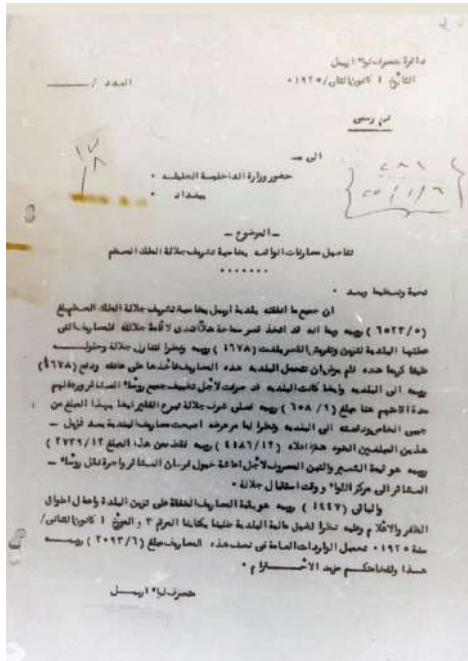 دائرة متصرف لواء اربيل
التاريخ ١ كانون الثاني/١٩٢٥٠
العدد /
غير رسمي
الى —
حضور وزارة الداخلية الجليلة ٠
بغداد ٠
١٧
٨
— الموضوع —
تفاصيل مصارفات الواقعه بمناسبة تشريف جلالة الملك المعظم
٠٠٠٠٠٠٠
تحية وتعظيما وبعد ٠
ان جميع ما انفقته بلدية اربيل بمناسبة تشريف جلالة الملك المعظم مبلغ
(٦٥٢٣/٥) روبيه وبما انه قد اتخذ قصر سماحة ملا افندي لاقامة جلالته فالمصاريف التي
عملتها البلدية لتزيين وتفريش القصر بلغت (٤٦٧٨) روبيه ونظرا لتنازل جلالة وحلوله
ضيفا كريما عنده فلم يرض ان تتحمل البلدية هذه المصاريف فأخذها على عاتقه ودفع (٤٦٧٨)
روبيه الى البلدية وايضا كانت البلدية قد صرفت لأجل تضييف جميع روساء العشائر ورجالهم
مدة اقامتهم هنا مبلغ (٦٥٨/٩) روبيه فعلى شرف جلالة تبرع الفقير ايضا بهذا المبلغ من
جيبي الخاص ودفعته الى البلدية ونظرا لما مر عرضه اصبحت مصاريف البلدية بعد تنزيل —
هذين المبلغين المنوه عنهما اعلاه (٤١٨٦/١٢) روبيه فقط فمن هذا المبلغ (٢٧٣٩/١٢)
روبيه هو قيمة الشعير والتبن المصروف لأجل اعاشة خيول فرسان العشائر واجرة نقل روساء —
العشائر الى مركز اللواء وقت استقبال جلالته ٠
والباقي (١٤٤٧) روبيه هو بقية المصاريف المختلفة على تزيين البلدة واعمال اطواق
الظفر والاقلام وعليه نظرا لضيق مالية البلدية طلبنا بكتابنا المرقم ٣ والمؤرخ ١ كانون الثاني/
سنة ١٩٢٥٠ تحميل الواردات العامة نصف هذه المصاريف مبلغ (٢٠٩٣/٦) روبيه
هذا ولفخامتكم مزيد الاحترام ٠
متصرف لواء اربيل